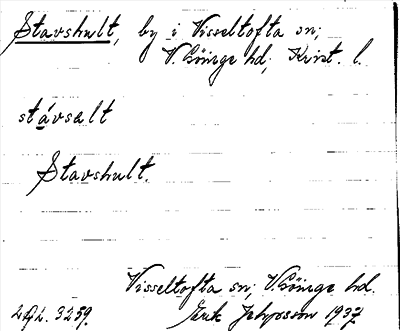 Stavshult, by i Visseltofta sn;
V. Göinge hd, Krist. l.
stávsalt
Stavshult.
Visseltofta sn; V. Göinge hd.
3259. 1937.